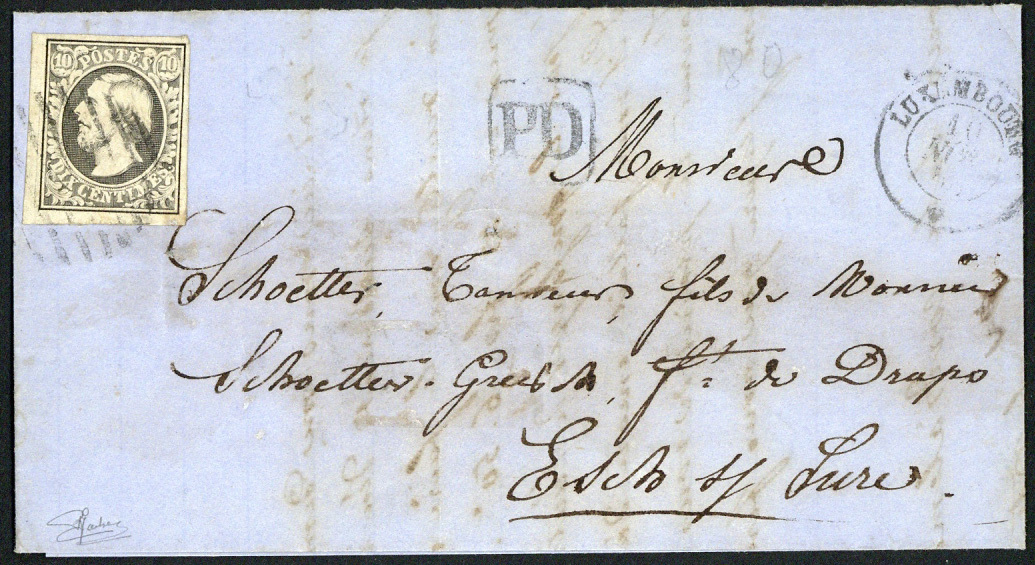 10 POSTES 10
UN DECIME 10 CENTIMES
PD
LUXEMBOURG
10
NOV
80
Monsieur
Schoetter, Tanneur, fils de Monsieur
Schoetter-Greisch, ft. de Draps
Esch s/ Sure.